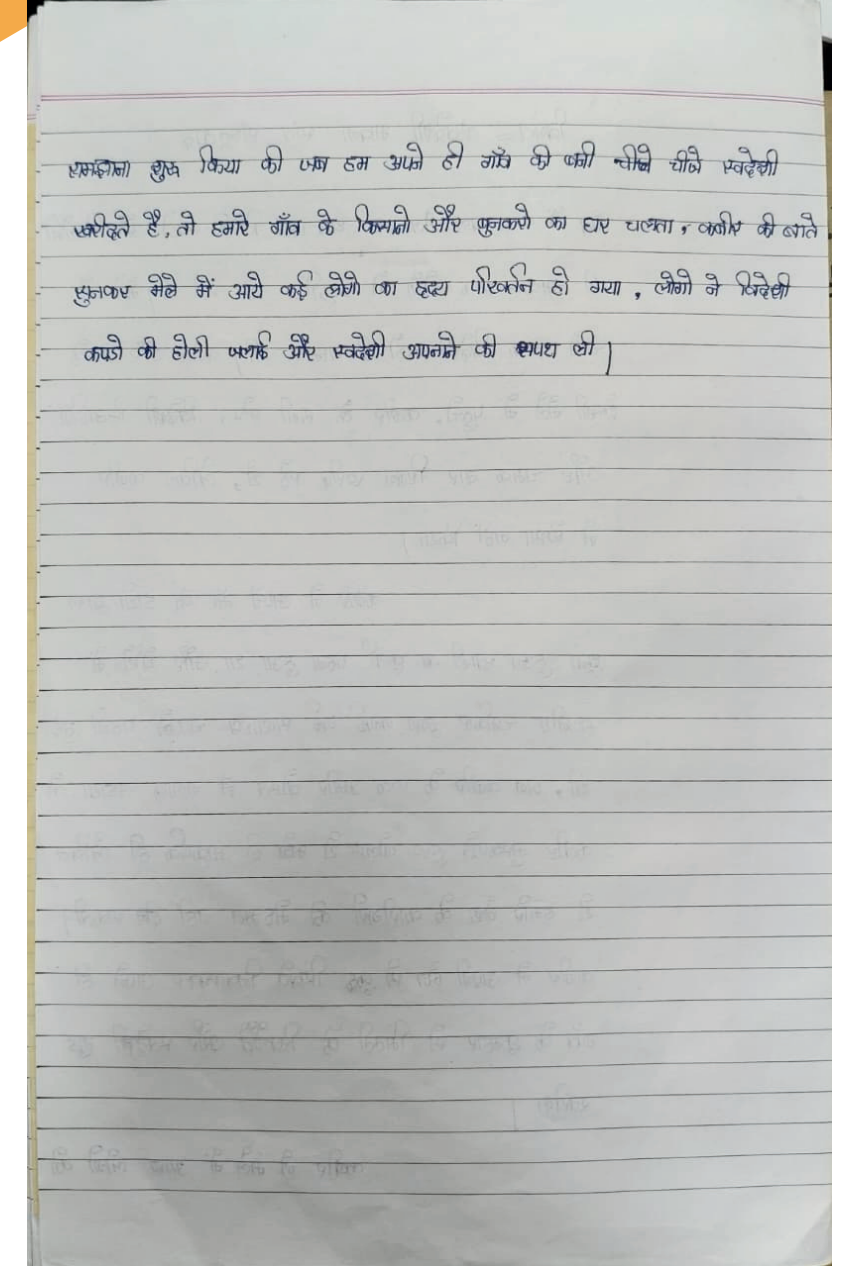 समझाना शुरू किया की जब हम अपने ही गाँव की बनी चीजे स्वदेशी
खरीदते है, तो हमारे गाँव के किसानो और बुनकरो का घर चलता, कबीर की बाते
सुनकर मेले में आये कई लोगो का हृदय परिवर्तन हो गया, लोगो ने विदेशी
कपडो की होली जलाई और स्वदेशी अपनाने की शपथ ली |